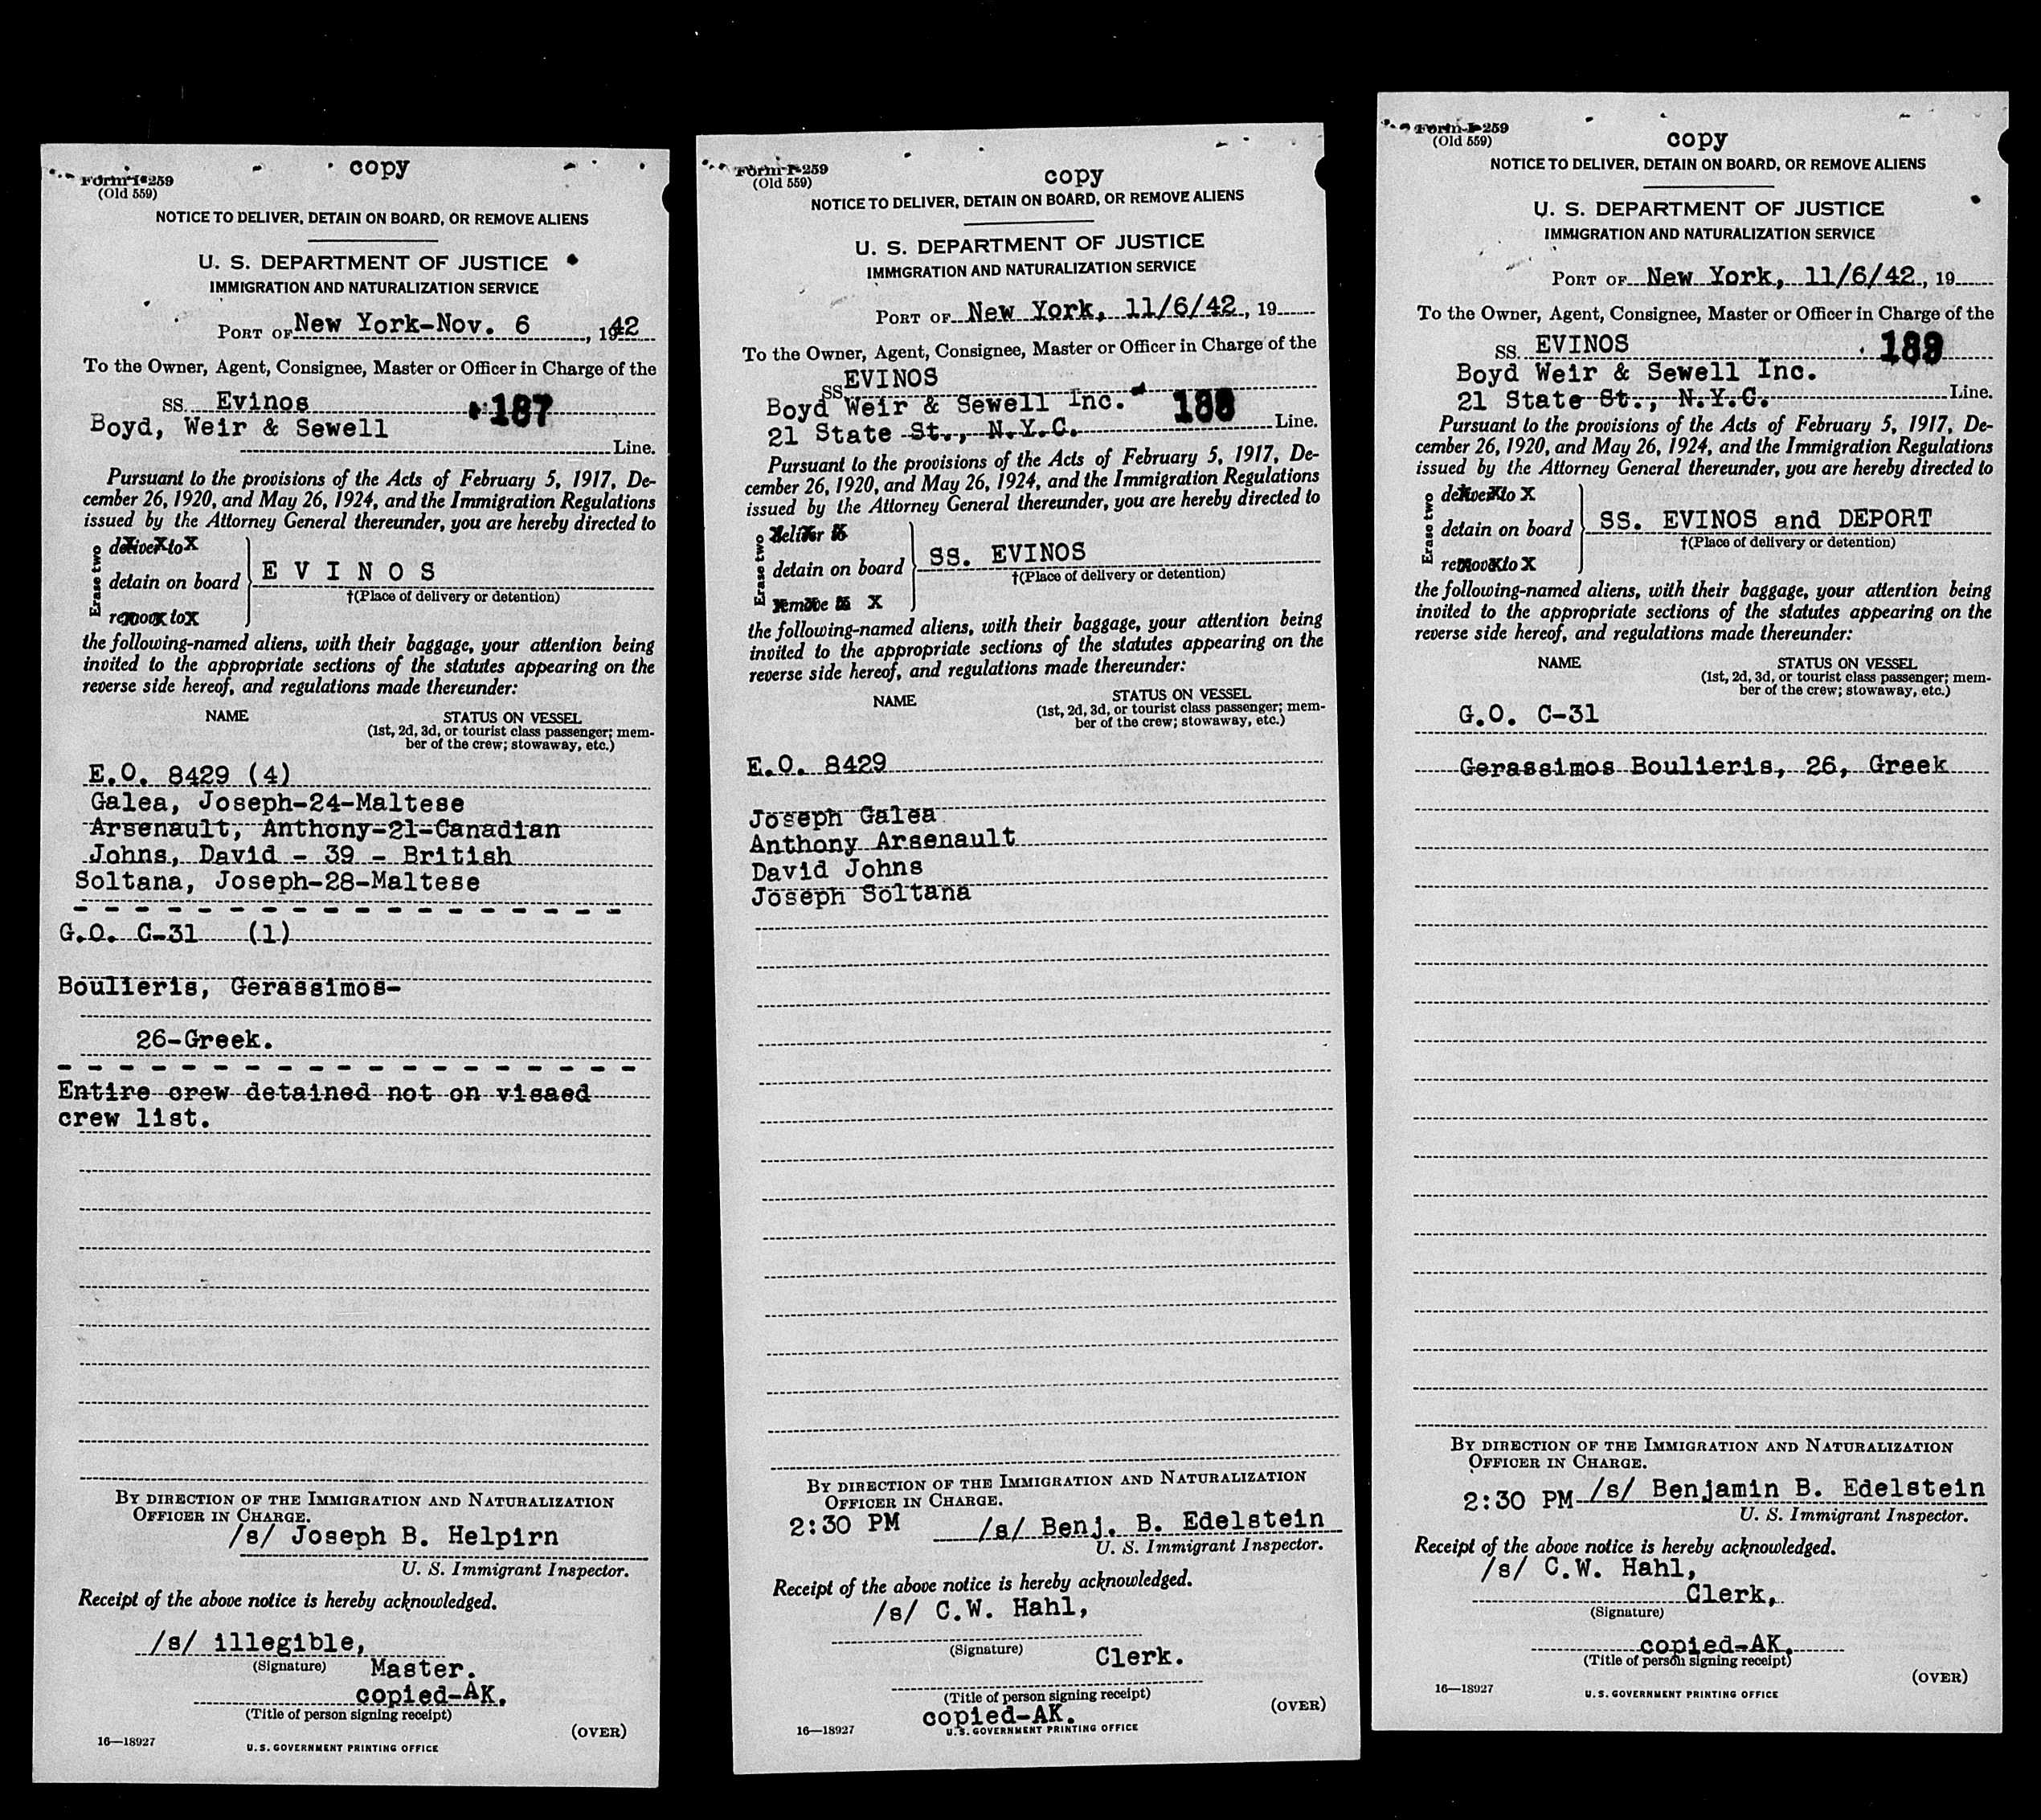 copy
Form I-259
(Old 559)
NOTICE TO DELIVER, DETAIN ON BOARD, OR REMOVE ALIENS
U. S. DEPARTMENT OF JUSTICE
IMMIGRATION AND NATURALIZATION SERVICE
PORT OF New York-Nov. 6, 1942
To the Owner, Agent, Consignee, Master or Officer in Charge of the
SS. Evinos 187
Boyd, Weir & Sewell
Line.
Pursuant to the provisions of the Acts of February 5, 1917, De-
cember 26, 1920, and May 26, 1924, and the Immigration Regulations
issued by the Attorney General thereunder, you are hereby directed to
Erase two
deliver to X
detain on board
E V I N O S
†(Place of delivery or detention)
remove to X
the following-named aliens, with their baggage, your attention being
invited to the appropriate sections of the statutes appearing on the
reverse side hereof, and regulations made thereunder:
NAME STATUS ON VESSEL
(1st, 2d, 3d, or tourist class passenger; mem-
ber of the crew; stowaway, etc.)
E.O. 8429 (4)
Galea, Joseph-24-Maltese
Arsenault, Anthony-21-Canadian
Johns, David - 39 - British
Soltana, Joseph-28-Maltese
G.O. C-31 (1)
Boulieris, Gerassimos-
26-Greek.
Entire crew detained not on visaed
crew list.
BY DIRECTION OF THE IMMIGRATION AND NATURALIZATION
OFFICER IN CHARGE.
/s/ Joseph B. Helpirn
U. S. Immigrant Inspector.
Receipt of the above notice is hereby acknowledged.
/s/ illegible,
(Signature) Master.
copied-AK.
(Title of person signing receipt)
(OVER)
16—18927
U.S. GOVERNMENT PRINTING OFFICE
Form I-259
(Old 559)
copy
NOTICE TO DELIVER, DETAIN ON BOARD, OR REMOVE ALIENS
U. S. DEPARTMENT OF JUSTICE
IMMIGRATION AND NATURALIZATION SERVICE
PORT OF New York, 11/6/42, 19
To the Owner, Agent, Consignee, Master or Officer in Charge of the
SS EVINOS
Boyd Weir & Sewell Inc. 188
21 State St., N.Y.C. Line.
Pursuant to the provisions of the Acts of February 5, 1917, De-
cember 26, 1920, and May 26, 1924, and the Immigration Regulations
issued by the Attorney General thereunder, you are hereby directed to
Erase two
deliver to
detain on board
SS. EVINOS
†(Place of delivery or detention)
remove to X
the following-named aliens, with their baggage, your attention being
invited to the appropriate sections of the statutes appearing on the
reverse side hereof, and regulations made thereunder:
NAME STATUS ON VESSEL
(1st, 2d, 3d, or tourist class passenger; mem-
ber of the crew; stowaway, etc.)
E.O. 8429
Joseph Galea
Anthony Arsenault
David Johns
Joseph Soltana
BY DIRECTION OF THE IMMIGRATION AND NATURALIZATION
OFFICER IN CHARGE.
2:30 PM /s/ Benj. B. Edelstein
U. S. Immigrant Inspector.
Receipt of the above notice is hereby acknowledged.
/s/ C.W. Hahl,
(Signature) Clerk.
(Title of person signing receipt)
copied-AK.
(OVER)
16—18927
U.S. GOVERNMENT PRINTING OFFICE
Form I-259
(Old 559)
copy
NOTICE TO DELIVER, DETAIN ON BOARD, OR REMOVE ALIENS
U. S. DEPARTMENT OF JUSTICE
IMMIGRATION AND NATURALIZATION SERVICE
PORT OF New York, 11/6/42, 19
To the Owner, Agent, Consignee, Master or Officer in Charge of the
SS. EVINOS 189
Boyd Weir & Sewell Inc.
21 State St., N.Y.C. Line.
Pursuant to the provisions of the Acts of February 5, 1917, De-
cember 26, 1920, and May 26, 1924, and the Immigration Regulations
issued by the Attorney General thereunder, you are hereby directed to
Erase two
deliver to X
detain on board
SS. EVINOS and DEPORT
†(Place of delivery or detention)
remove to X
the following-named aliens, with their baggage, your attention being
invited to the appropriate sections of the statutes appearing on the
reverse side hereof, and regulations made thereunder:
NAME STATUS ON VESSEL
(1st, 2d, 3d, or tourist class passenger; mem-
ber of the crew; stowaway, etc.)
G.O. C-31
Gerassimos Boulieris, 26, Greek
BY DIRECTION OF THE IMMIGRATION AND NATURALIZATION
OFFICER IN CHARGE.
2:30 PM /s/ Benjamin B. Edelstein
U. S. Immigrant Inspector.
Receipt of the above notice is hereby acknowledged.
/s/ C.W. Hahl,
Clerk,
(Signature)
copied-AK,
(Title of person signing receipt)
(OVER)
16—18927
U.S. GOVERNMENT PRINTING OFFICE